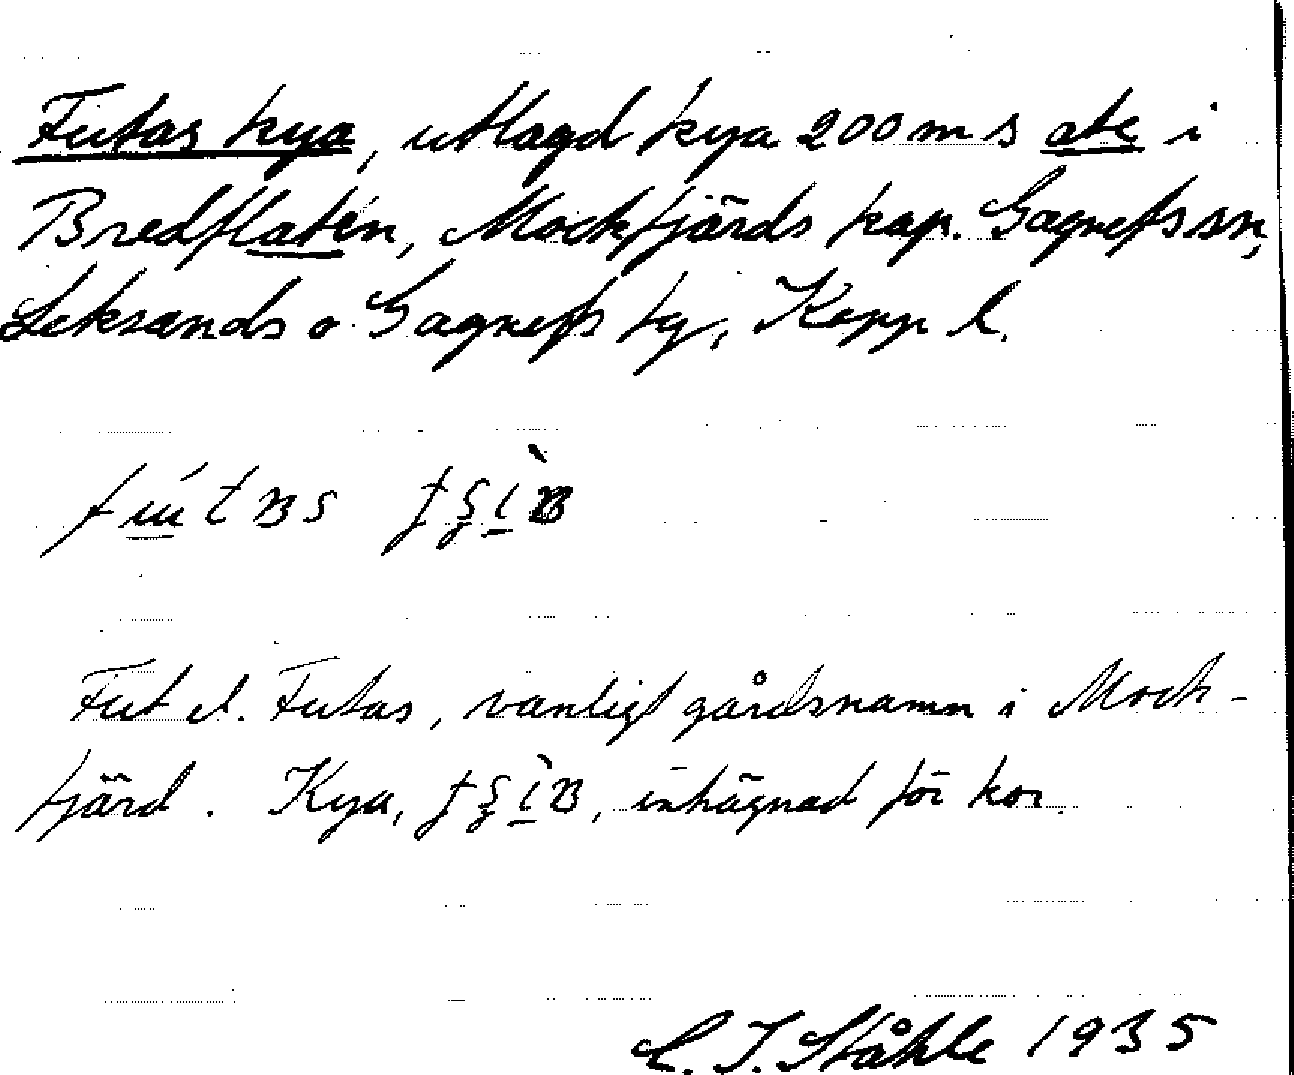 Futas kya, utlagd kya 200 m s ate i
Bredflaten, Mockfjärds kap. Gagnefs sn,
Leksands o Gagnefs tg, Kopp l.
Fut el. Futas, vanligt gårdsnamn i Mock-
fjärd. Kya, inhägnad för kor.
C. I. Ståhle 1935